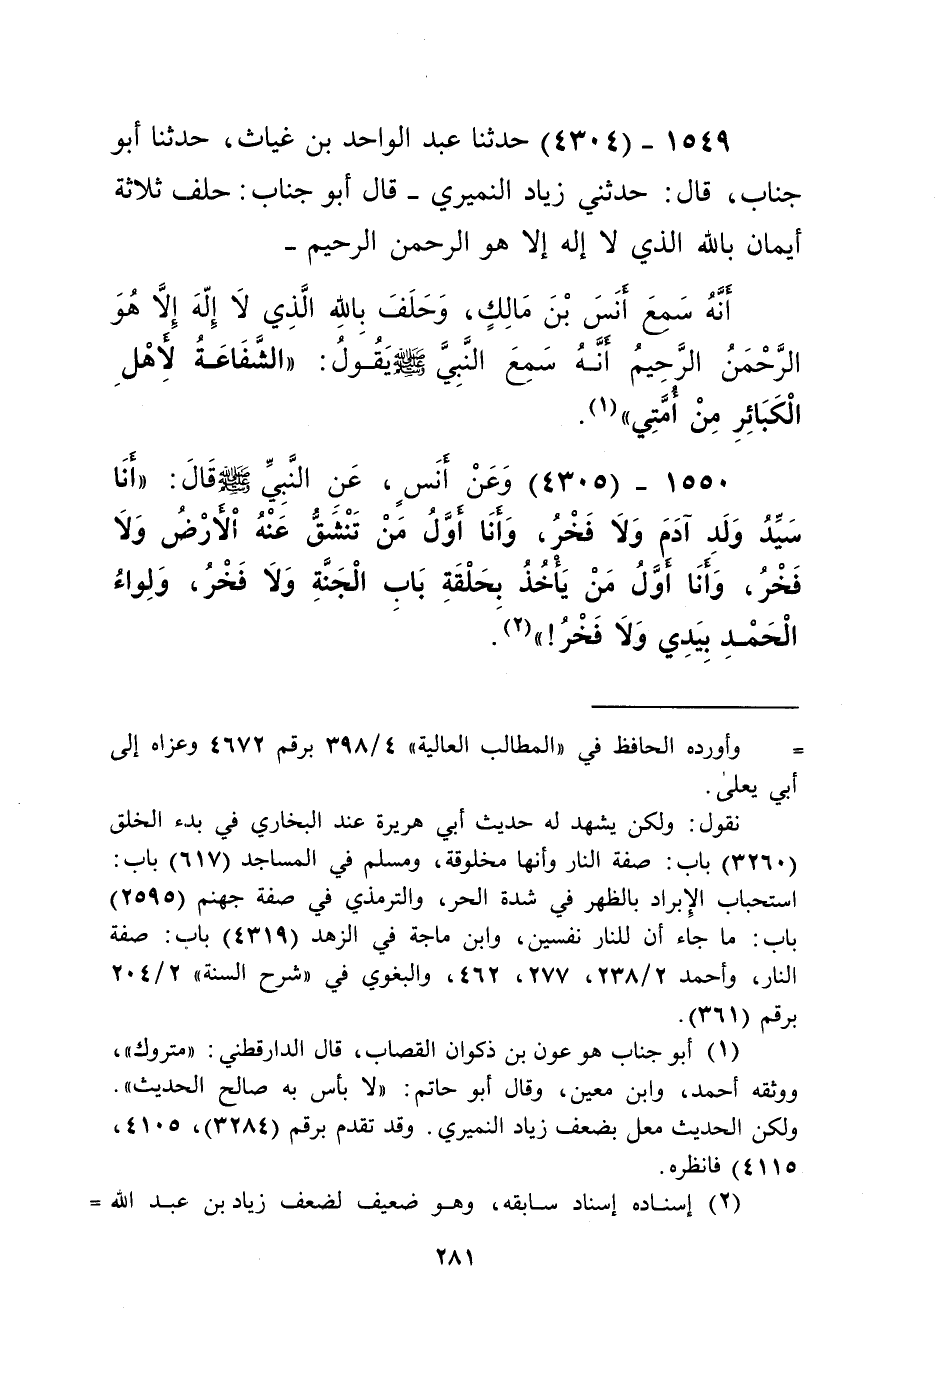 ١٥٤٩ - (٤٣٠٤) حدثنا عبد الواحد بن غياث، حدثنا أبو
جناب، قال: حدثني زياد النميري - قال أبو جناب: حلف ثلاثة
أيمان بالله الذي لا إله إلا هو الرحمن الرحيم -
أَنَّهُ سَمِعَ أَنَسَ بْنَ مَالِكٍ، وَحَلَفَ بِاللهِ الَّذِي لَا إِلَهَ إِلَّا هُوَ
الرَّحْمَنُ الرَّحِيمُ أَنَّهُ سَمِعَ النَّبِيَّ ﷺ يَقُولُ: «الشَّفَاعَةُ لأَهْلِ
الْكَبَائِرِ مِنْ أُمَّتِي»(١).
١٥٥٠ - (٤٣٠٥) وَعَنْ أَنَسٍ، عَنِ النَّبِيِّ ﷺ قَالَ: «أَنَا
سَيِّدُ وَلَدِ آدَمَ وَلَا فَخْرُ، وَأَنَا أَوَّلُ مَنْ تَنْشَقُّ عَنْهُ الْأَرْضُ وَلَا
فَخْرُ، وَأَنَا أَوَّلُ مَنْ يَأْخُذُ بِحَلْقَةِ بَابِ الْجَنَّةِ وَلَا فَخْرُ، وَلِواءُ
الْحَمْدِ بِيَدِي وَلَا فَخْرُ!»(٢).
= وأورده الحافظ في «المطالب العالية» ٣٩٨/٤ برقم ٤٦٧٢ وعزاه إلى
أبي يعلىٰ.
نقول: ولكن يشهد له حديث أبي هريرة عند البخاري في بدء الخلق
(٣٢٦٠) باب: صفة النار وأنها مخلوقة، ومسلم في المساجد (٦١٧) باب:
استحباب الإِبراد بالظهر في شدة الحر، والترمذي في صفة جهنم (٢٥٩٥)
باب: ما جاء أن للنار نفسين، وابن ماجة في الزهد (٤٣١٩) باب: صفة
النار، وأحمد ٢٣٨/٢، ٢٧٧، ٤٦٢، والبغوي في «شرح السنة» ٢٠٤/٢
برقم (٣٦١).
(١) أبو جناب هو عون بن ذكوان القصاب، قال الدارقطني: «متروك»،
ووثقه أحمد، وابن معين، وقال أبو حاتم: «لا بأس به صالح الحديث».
ولكن الحديث معل بضعف زياد النميري. وقد تقدم برقم (٣٢٨٤)، ٤١٠٥،
٤١١٥) فانظره.
(٢) إسناده إسناد سابقه، وهو ضعيف لضعف زياد بن عبد الله =
٢٨١